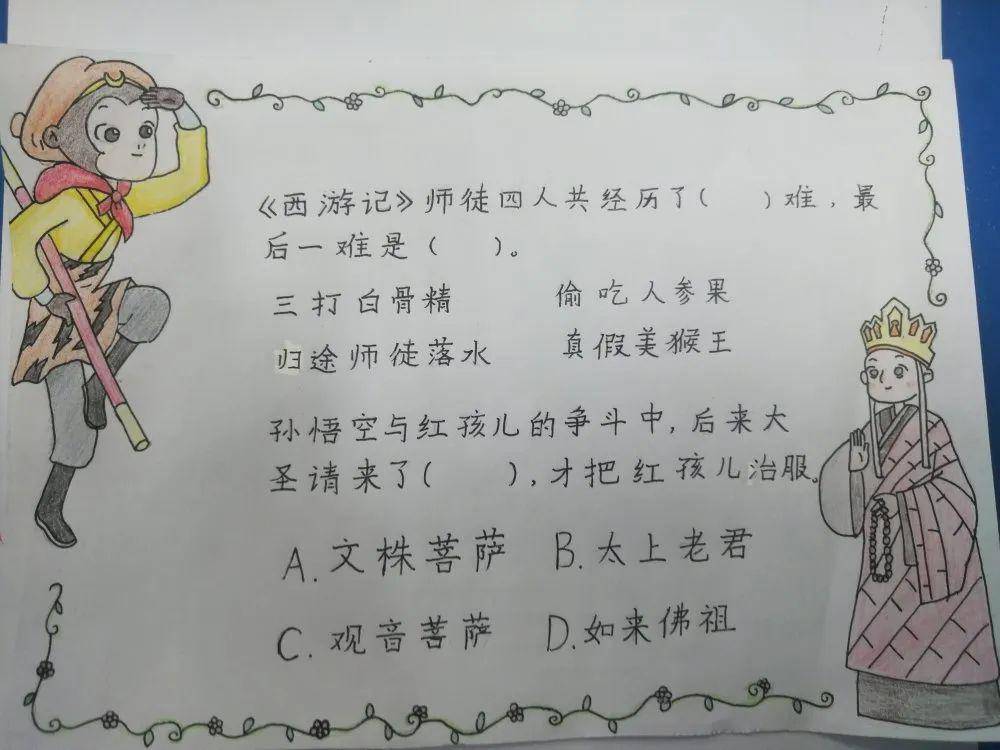 《西游记》师徒四人共经历了(  )难,最
后一难是(  )。
三打白骨精 偷吃人参果
归途师徒落水 真假美猴王
孙悟空与红孩儿的争斗中,后来大
圣请来了(  ),才把红孩儿治服。
A.文株菩萨 B.太上老君
C.观音菩萨 D.如来佛祖